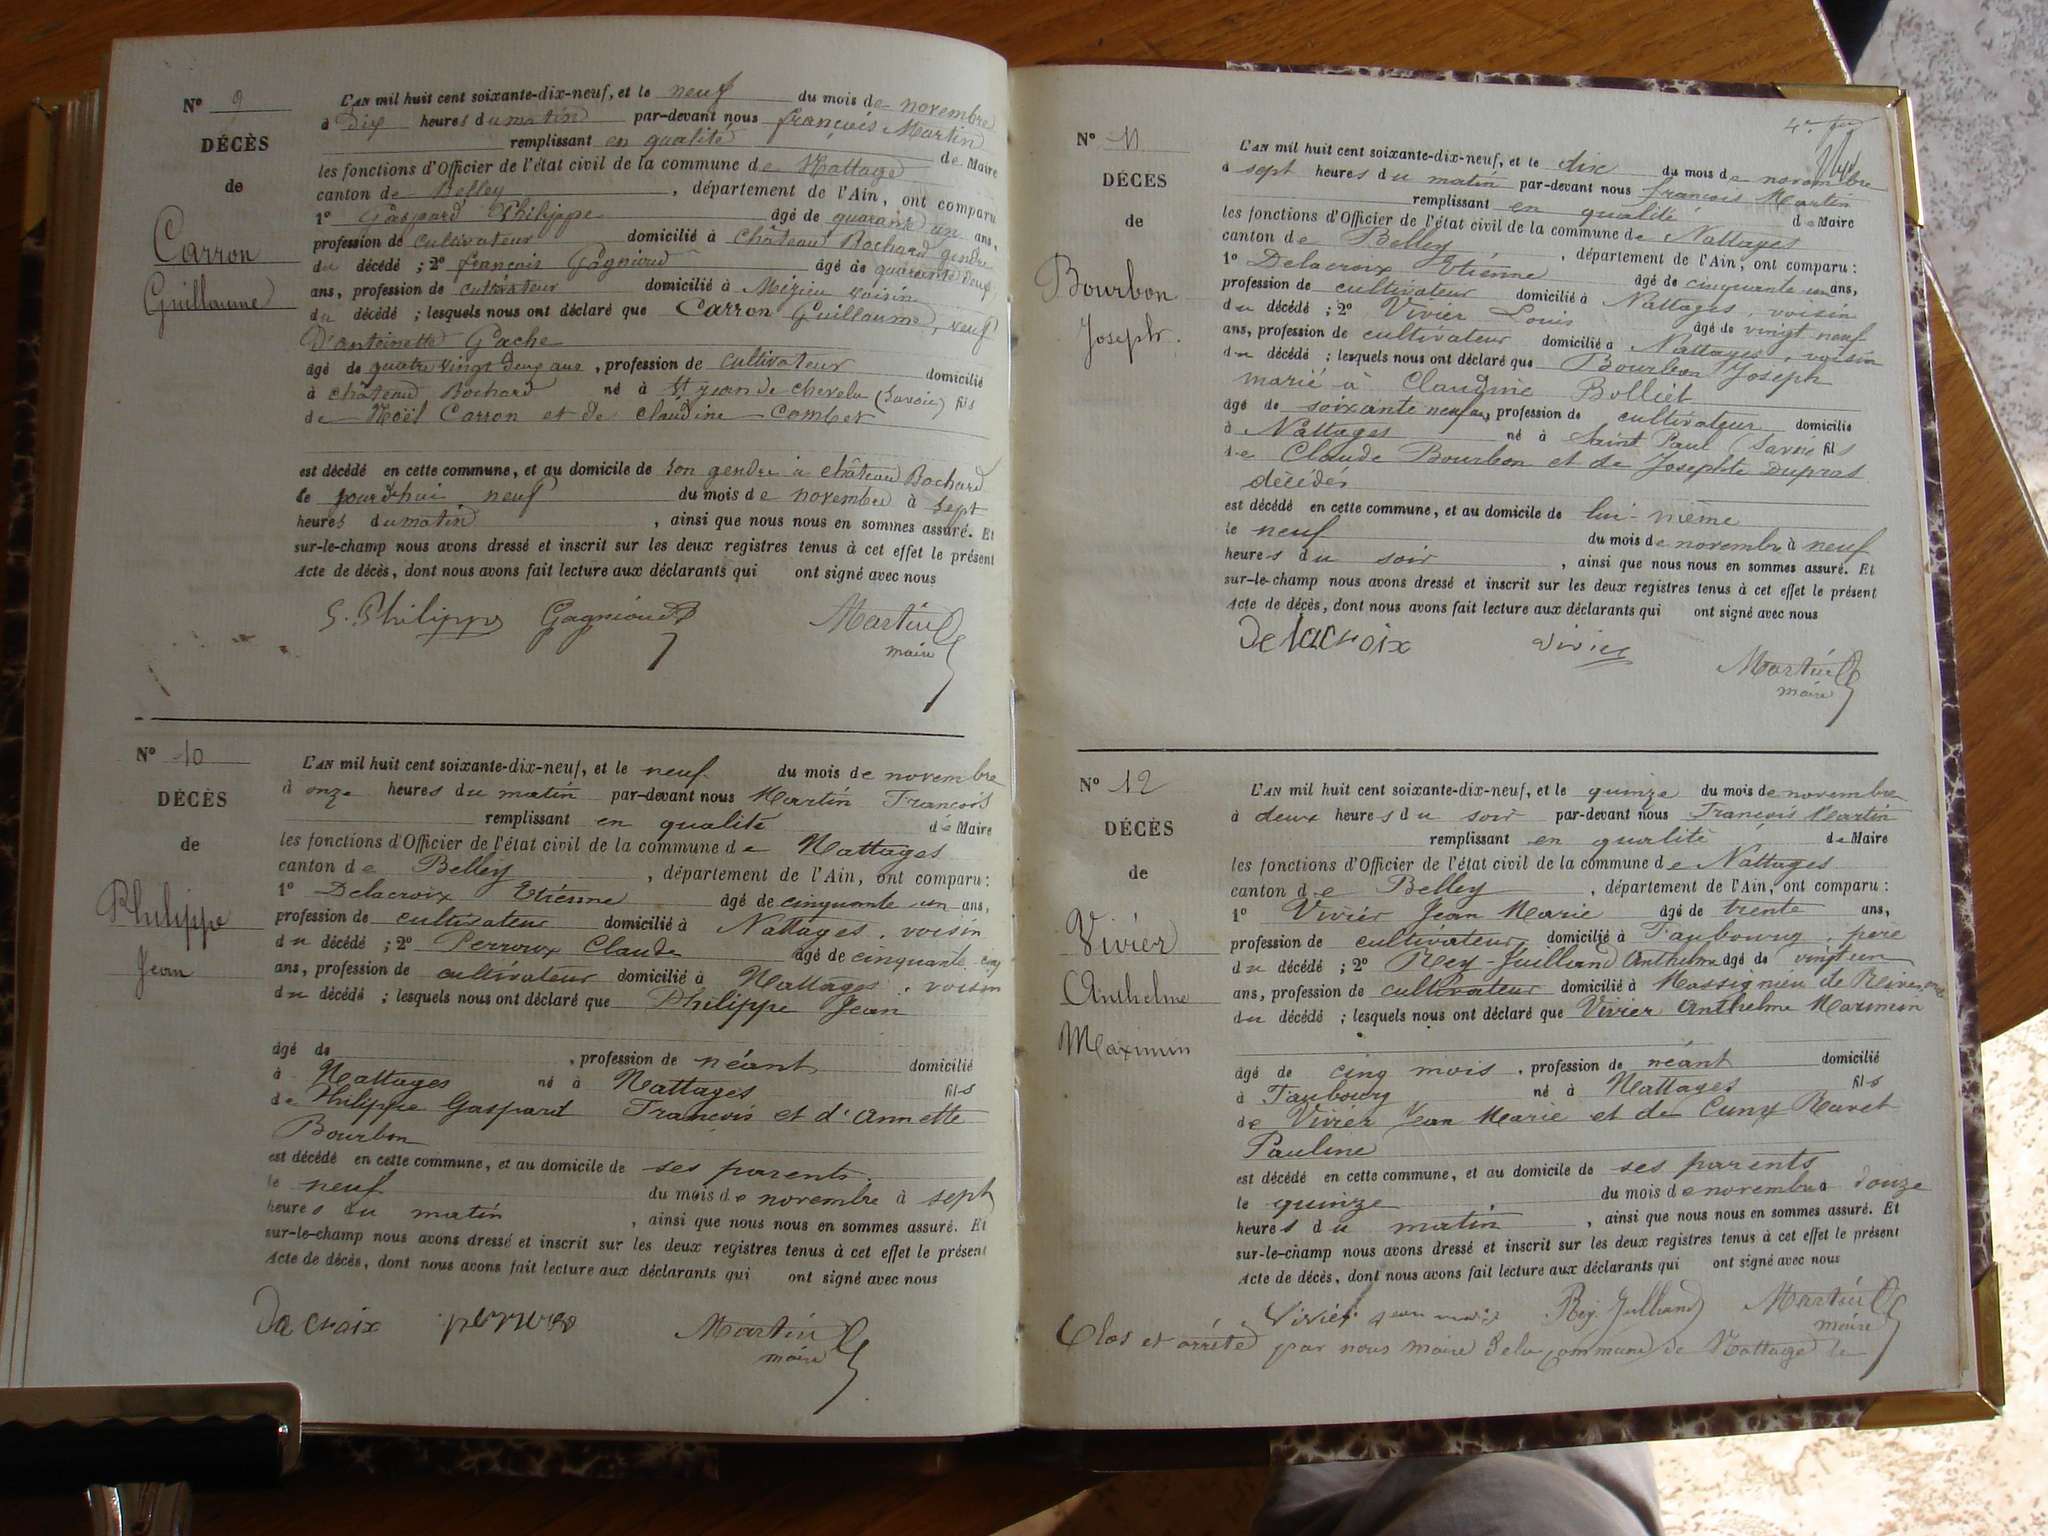 N° 9
DÉCÈS
de
Carron
Guillaume
L'AN mil huit cent soixante-dix-neuf, et le neuf du mois de novembre
à dix heures du matin par-devant nous françois Martin
remplissant en qualité de Maire
les fonctions d'Officier de l'état civil de la commune de Nattage
canton de Belley, département de l'Ain, ont comparu
1° Gaspard Philippe âgé de quarante un ans,
profession de cultivateur domicilié à château Bochard gendre
du décédé ; 2° françois Gagnioud âgé de quarante deux
ans, profession de cultivateur domicilié à voisin
du décédé ; lesquels nous ont déclaré que Carron Guillaume, veuf
D'antoinette Gache
âgé de quatre vingt deux ans, profession de cultivateur domicilié
à château Bochard né à St jean de chevelu (Savoie) fils
de Noël Carron et de claudine Combet
est décédé en cette commune, et au domicile de son gendre à château Bochard
le jourd'hui neuf du mois de novembre à sept
heures du matin, ainsi que nous nous en sommes assuré. Et
sur-le-champ nous avons dressé et inscrit sur les deux registres tenus à cet effet le présent
Acte de décès, dont nous avons fait lecture aux déclarants qui ont signé avec nous
G. Philippe Gagnioud Martin
maire
N° 10
DÉCÈS
de
Philippe
Jean
L'AN mil huit cent soixante-dix-neuf, et le neuf du mois de novembre
à onze heures du matin par-devant nous Martin François
remplissant en qualité de Maire
les fonctions d'Officier de l'état civil de la commune de Nattages
canton de Belley, département de l'Ain, ont comparu :
1° Delacroix Etienne âgé de cinquante un ans,
profession de cultivateur domicilié à Nattages, voisin
du décédé ; 2° Perroux Claude âgé de cinquante cinq
ans, profession de cultivateur domicilié à Nattages, voisin
du décédé ; lesquels nous ont déclaré que Philippe Jean
âgé de, profession de néant domicilié
à Nattages né à Nattages fils
de Philippe Gaspard François et d'Annette
Bourbon
est décédé en cette commune, et au domicile de ses parents.
le neuf du mois de novembre à sept
heures du matin, ainsi que nous nous en sommes assuré. Et
sur-le-champ nous avons dressé et inscrit sur les deux registres tenus à cet effet le présent
Acte de décès, dont nous avons fait lecture aux déclarants qui ont signé avec nous
Martin
maire
N° 11
DÉCÈS
de
Bourbon
Joseph.
L'AN mil huit cent soixante-dix-neuf, et le dix du mois de novembre
à sept heures du matin par-devant nous françois Martin
remplissant en qualité de Maire
les fonctions d'Officier de l'état civil de la commune de Nattages
canton de Belley, département de l'Ain, ont comparu :
1° Delacroix Etienne âgé de cinquante un ans,
profession de cultivateur domicilié à Nattages, voisin
du décédé ; 2° Vivier Louis âgé de vingt neuf
ans, profession de cultivateur domicilié à Nattages, voisin
du décédé ; lesquels nous ont déclaré que Bourbon Joseph
marié à Claudine Bolliet
âgé de soixante neuf ans, profession de cultivateur domicilié
à Nattages né à Saint Paul (Savoie fils
de Claude Bourbon et de Josephte Dupras
décédés
est décédé en cette commune, et au domicile de lui-même
le neuf du mois de novembre à neuf
heures du soir, ainsi que nous nous en sommes assuré. Et
sur-le-champ nous avons dressé et inscrit sur les deux registres tenus à cet effet le présent
Acte de décès, dont nous avons fait lecture aux déclarants qui ont signé avec nous
Delacroix Vivier
Martin
maire
N° 12
DÉCÈS
de
Vivier
Anthelme
Maximin
L'AN mil huit cent soixante-dix-neuf, et le quinze du mois de novembre
à deux heures du soir par-devant nous François Martin
remplissant en qualité de Maire
les fonctions d'Officier de l'état civil de la commune de Nattages
canton de Belley, département de l'Ain, ont comparu :
1° Vivier Jean Marie âgé de trente ans,
profession de cultivateur domicilié à Faubourg, père
du décédé ; 2° Rey-Juilland Anthelme âgé de vingt un
ans, profession de cultivateur domicilié à Massignieu de Rives
du décédé ; lesquels nous ont déclaré que Vivier Anthelme Maximin
âgé de cinq mois, profession de néant domicilié
à Faubourg né à Nattages fils
de Vivier Jean Marie et de Cuny Ravet
Pauline
est décédé en cette commune, et au domicile de ses parents
le quinze du mois de novembre à douze
heures du matin, ainsi que nous nous en sommes assuré. Et
sur-le-champ nous avons dressé et inscrit sur les deux registres tenus à cet effet le présent
Acte de décès, dont nous avons fait lecture aux déclarants qui ont signé avec nous
Vivier jean marie Rey-Juilland Martin
maire
Clos et arrêté par nous maire de la commune de Nattage le